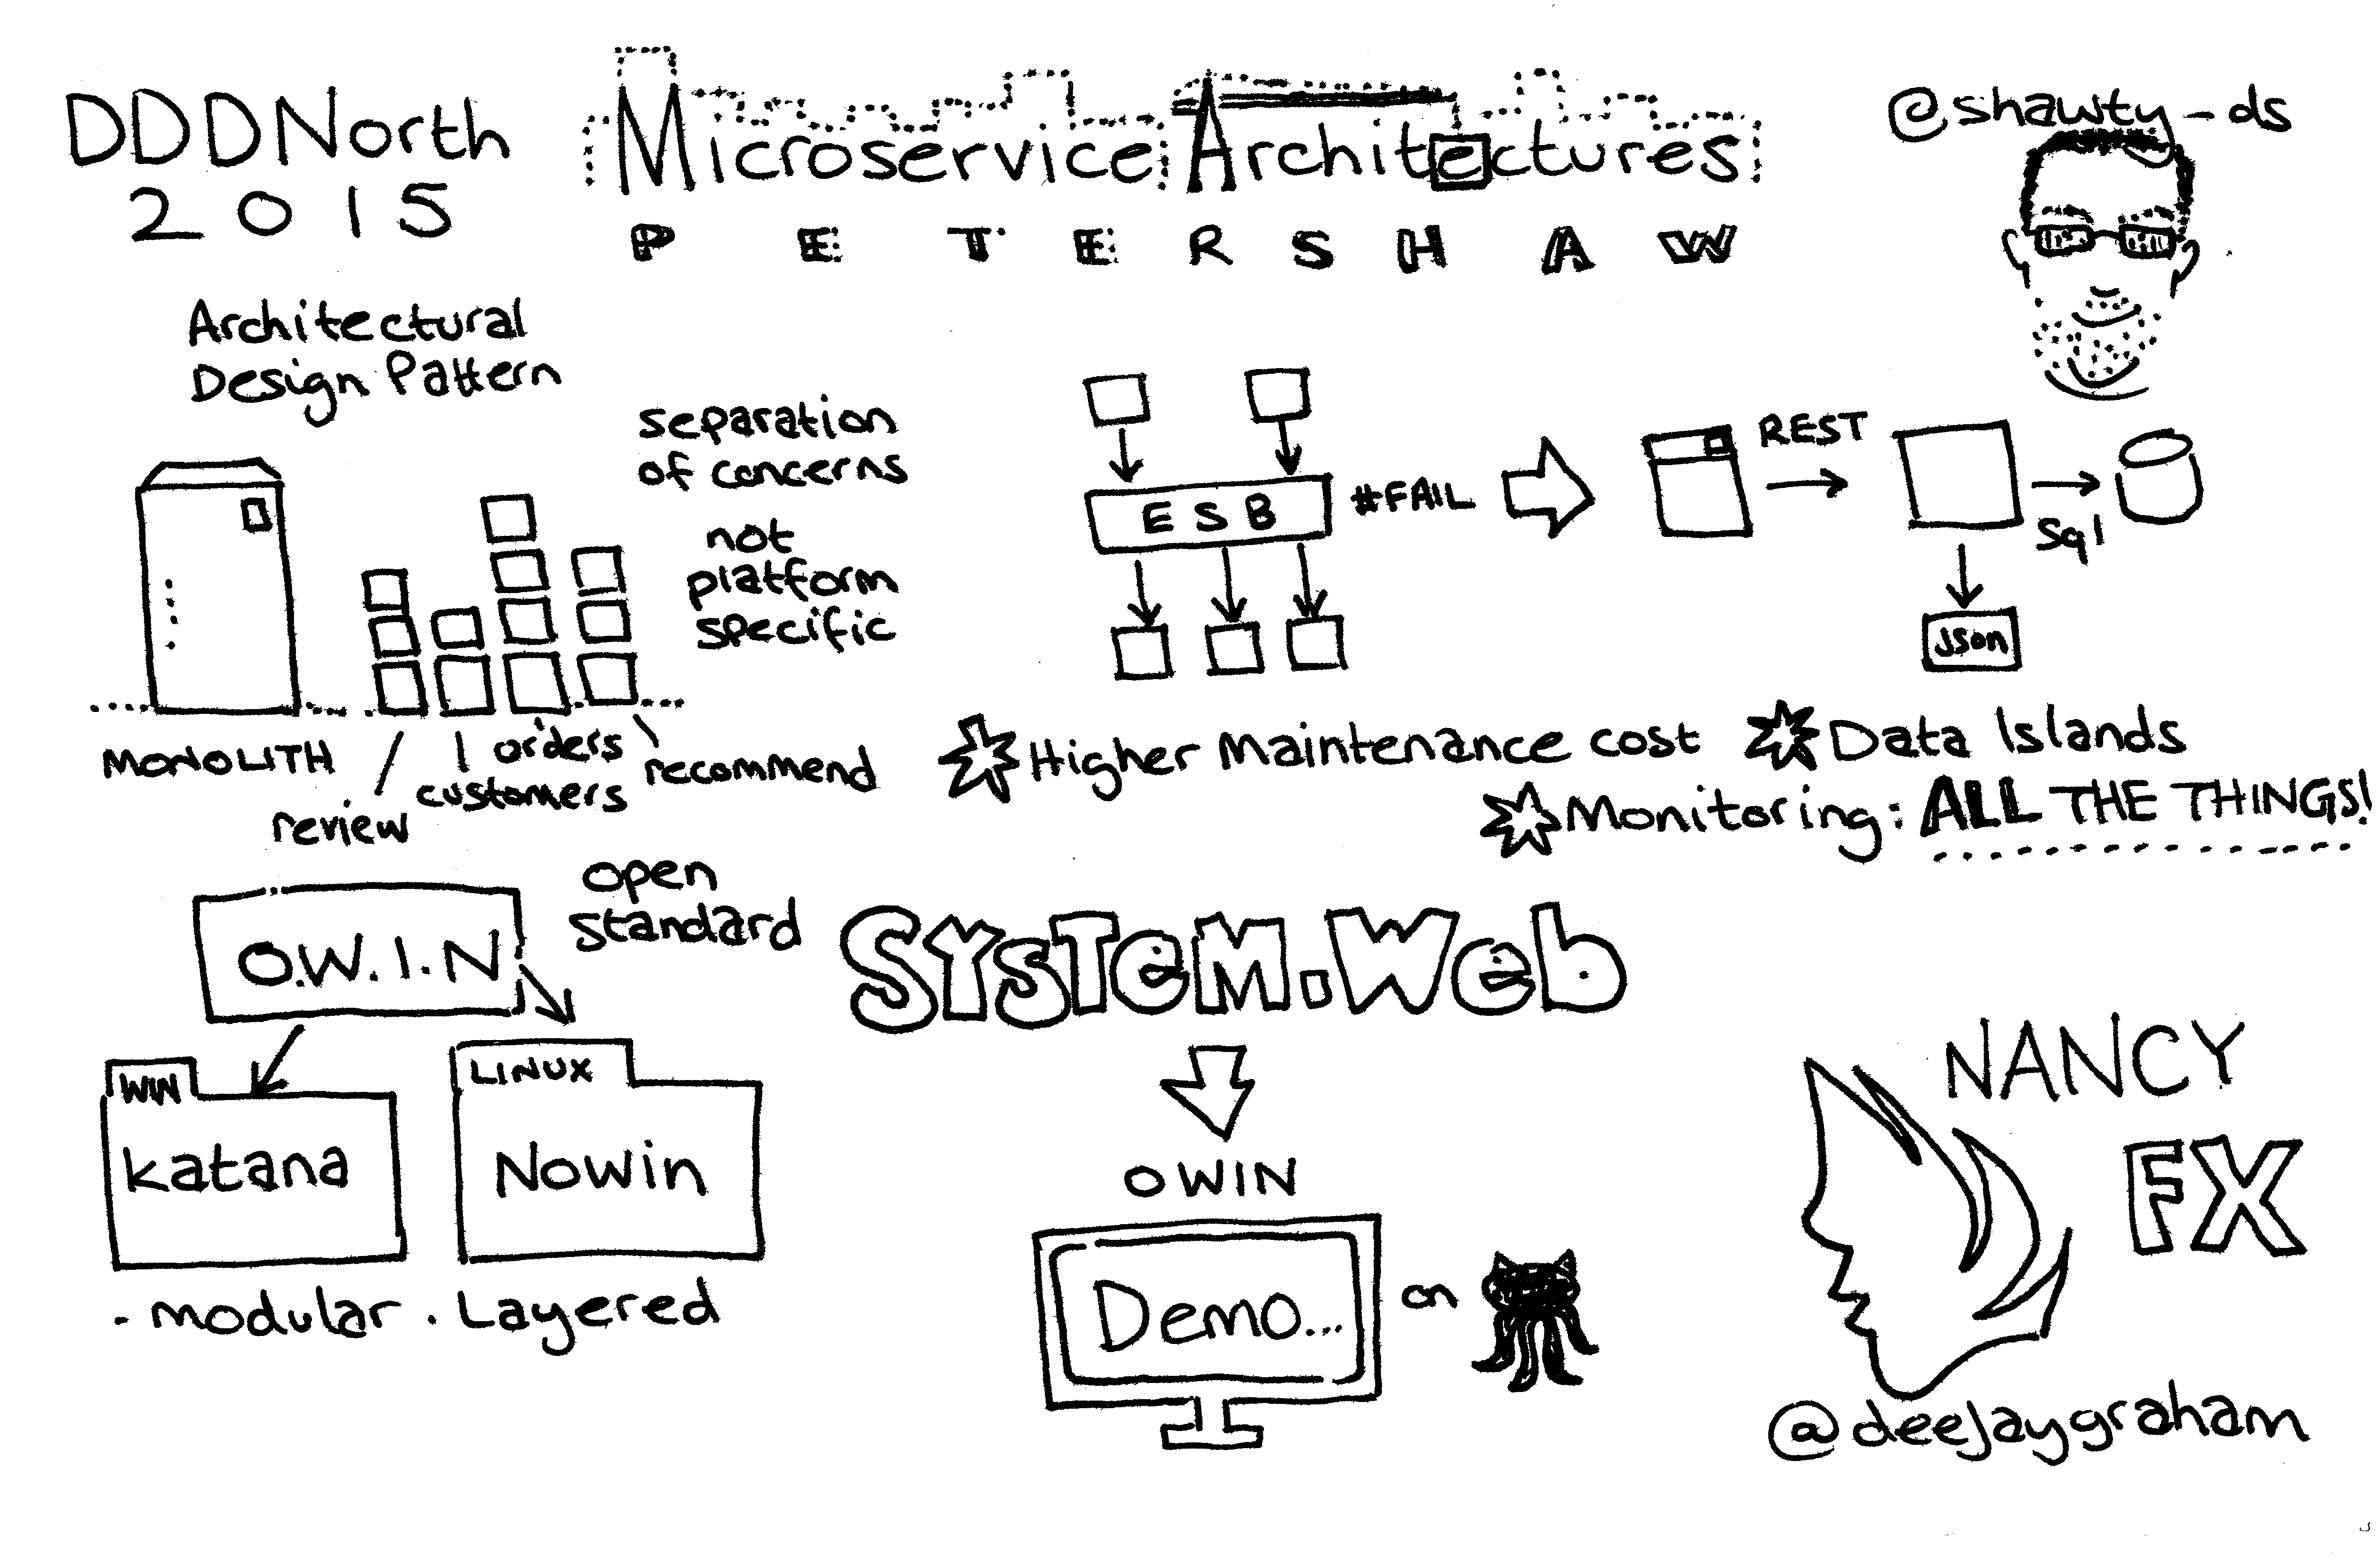 DDDNorth
2015
Microservice Architectures
PETER SHAW
@shawty-ds
Architectural
Design Pattern
separation
of concerns
not
platform
specific
MONOLITH
review
customers
orders
recommend
ESB
#FAIL
REST
Sql
Json
Higher Maintenance cost
Data Islands
Monitoring: ALL THE THINGS!
O.W.I.N
open
standard
WIN
katana
LINUX
Nowin
- modular . Layered
SYSTEM.Web
OWIN
Demo...
on
NANCY
FX
@deejaygraham